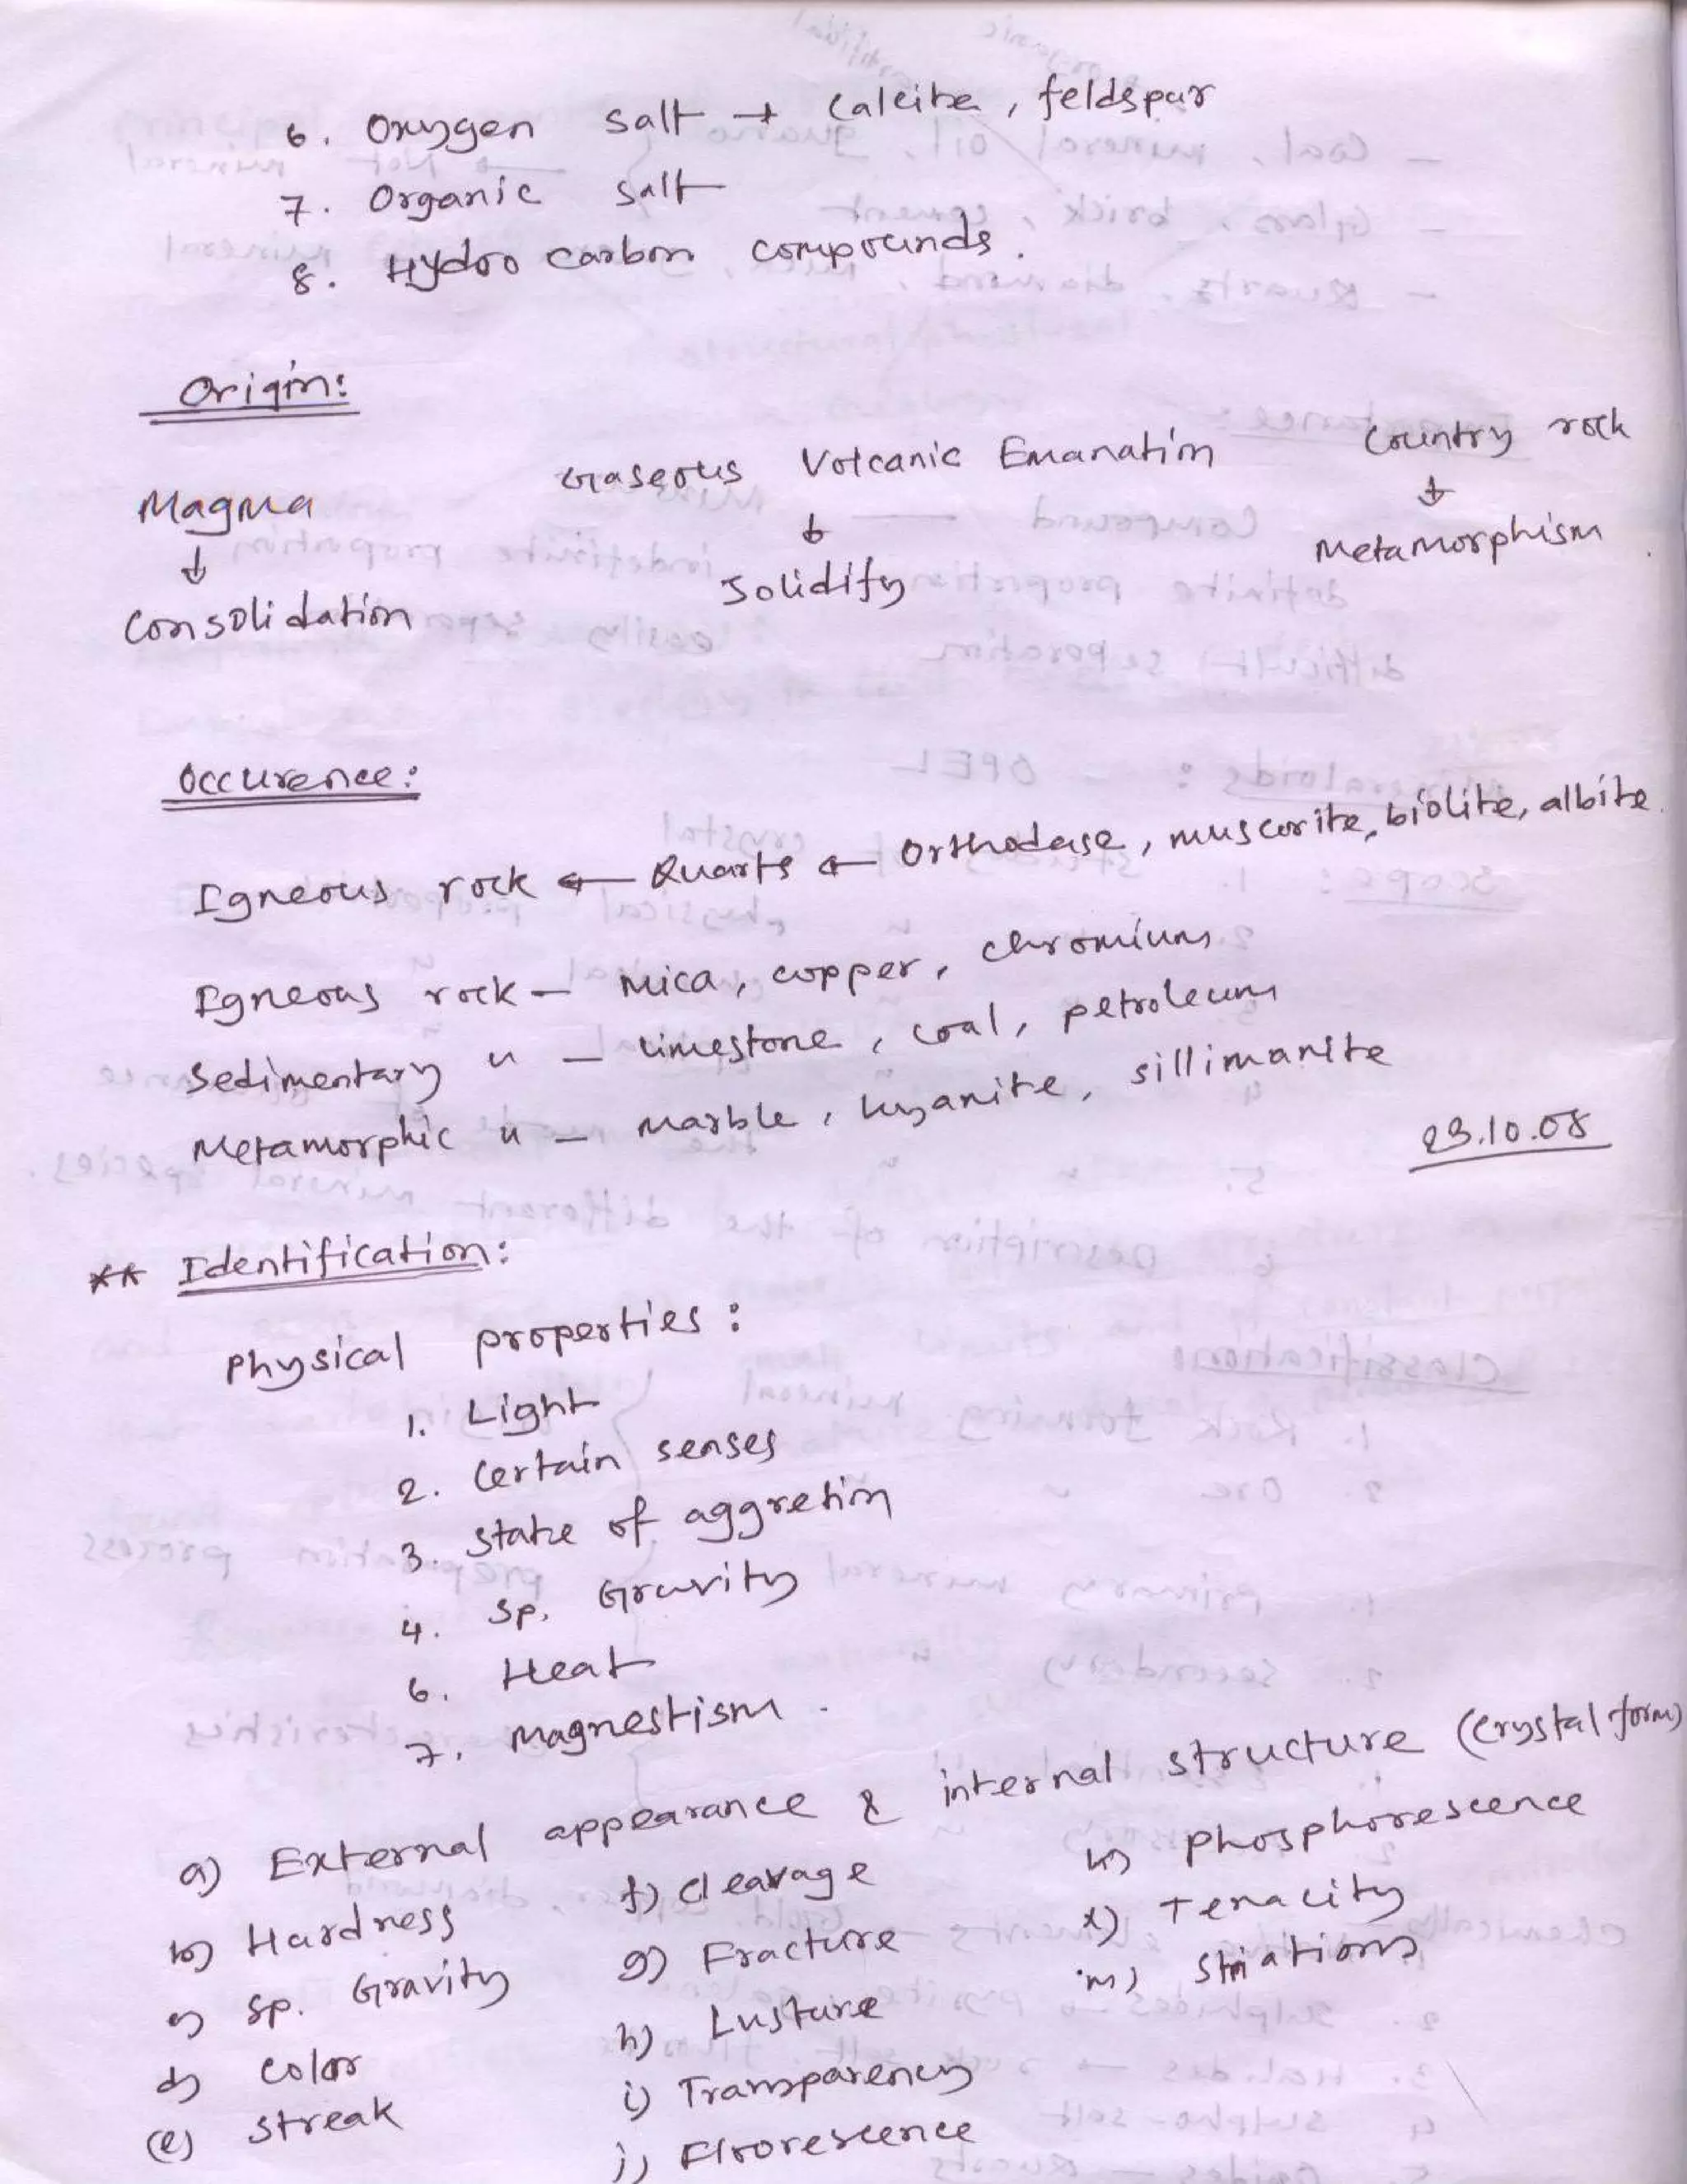 6. Oxygen salt → Calcite, feldspar
7. Organic salt
8. Hydro carbon compounds.
Origin:
Magma
↓
Consolidation
Gaseous Volcanic Emanation
↓
Solidify
Country rock
↓
Metamorphism.
Occurence:
Igneous rock ← Quarts ← Orthodase, muscovite, biolite, albite.
Igneous rock – Mica, copper, chromium
Sedimentary " – Limestone, coal, petroleum
Metamorphic " – Marble, kyanite, sillimanite
23.10.08
** Identification:
Physical properties:
1. Light
2. Certain senses
3. State of aggretion
4. Sp. Gravity
6. Heat
7. Magnestism.
a) External appearance & internal structure (crystal form)
b) Hardness
c) Sp. Gravity
d) Color
(e) Streak
f) Cleavage
g) Fracture
h) Lusture
i) Transparency
j) Floorescence
k) Phosphorescence
l) Tenacity
m) Striations